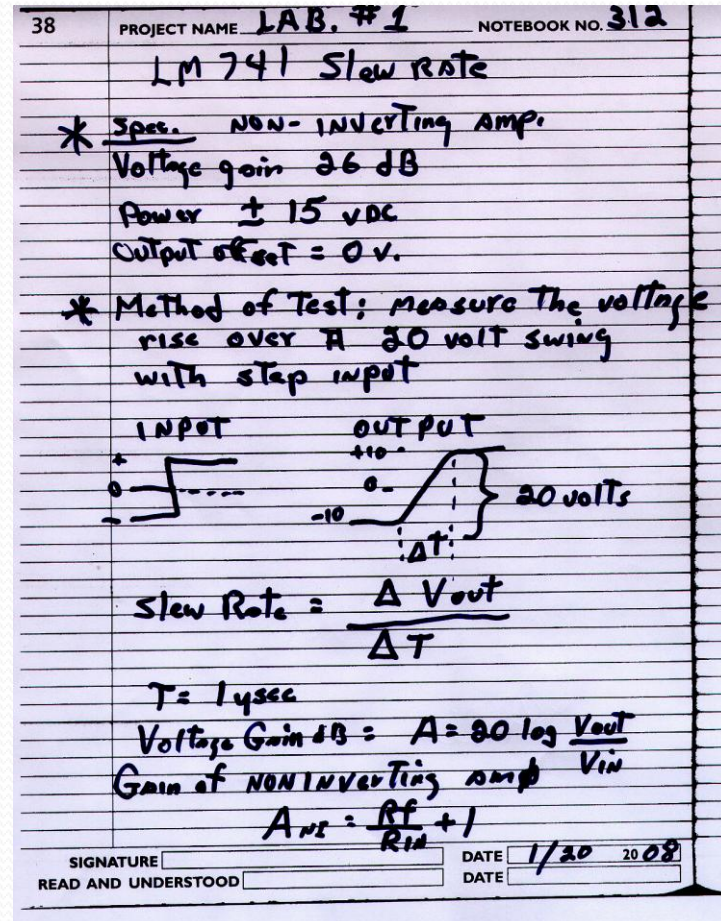 38 PROJECT NAME LAB. #1 NOTEBOOK NO. 312
LM 741 Slew RATE
* Spec. NON-INVerTing Amp.
Voltage gain 26 dB
Power ± 15 VDC
OutpuT offseT = 0 v.
* MeThod of TesT: measure The volTage
rise over A 20 volT swing
wiTh sTep inpuT
INPUT OUTPUT
+ +10
0 0
- -10
20 volTs
ΔT
Slew Rate = Δ Vout
ΔT
T = 1 µsec
VolTage Gain dB = A = 20 log Vout
Vin
Gain of NONINVerTing amp
A NI = Rf + 1
RIN
SIGNATURE DATE 1/20 2008
READ AND UNDERSTOOD DATE